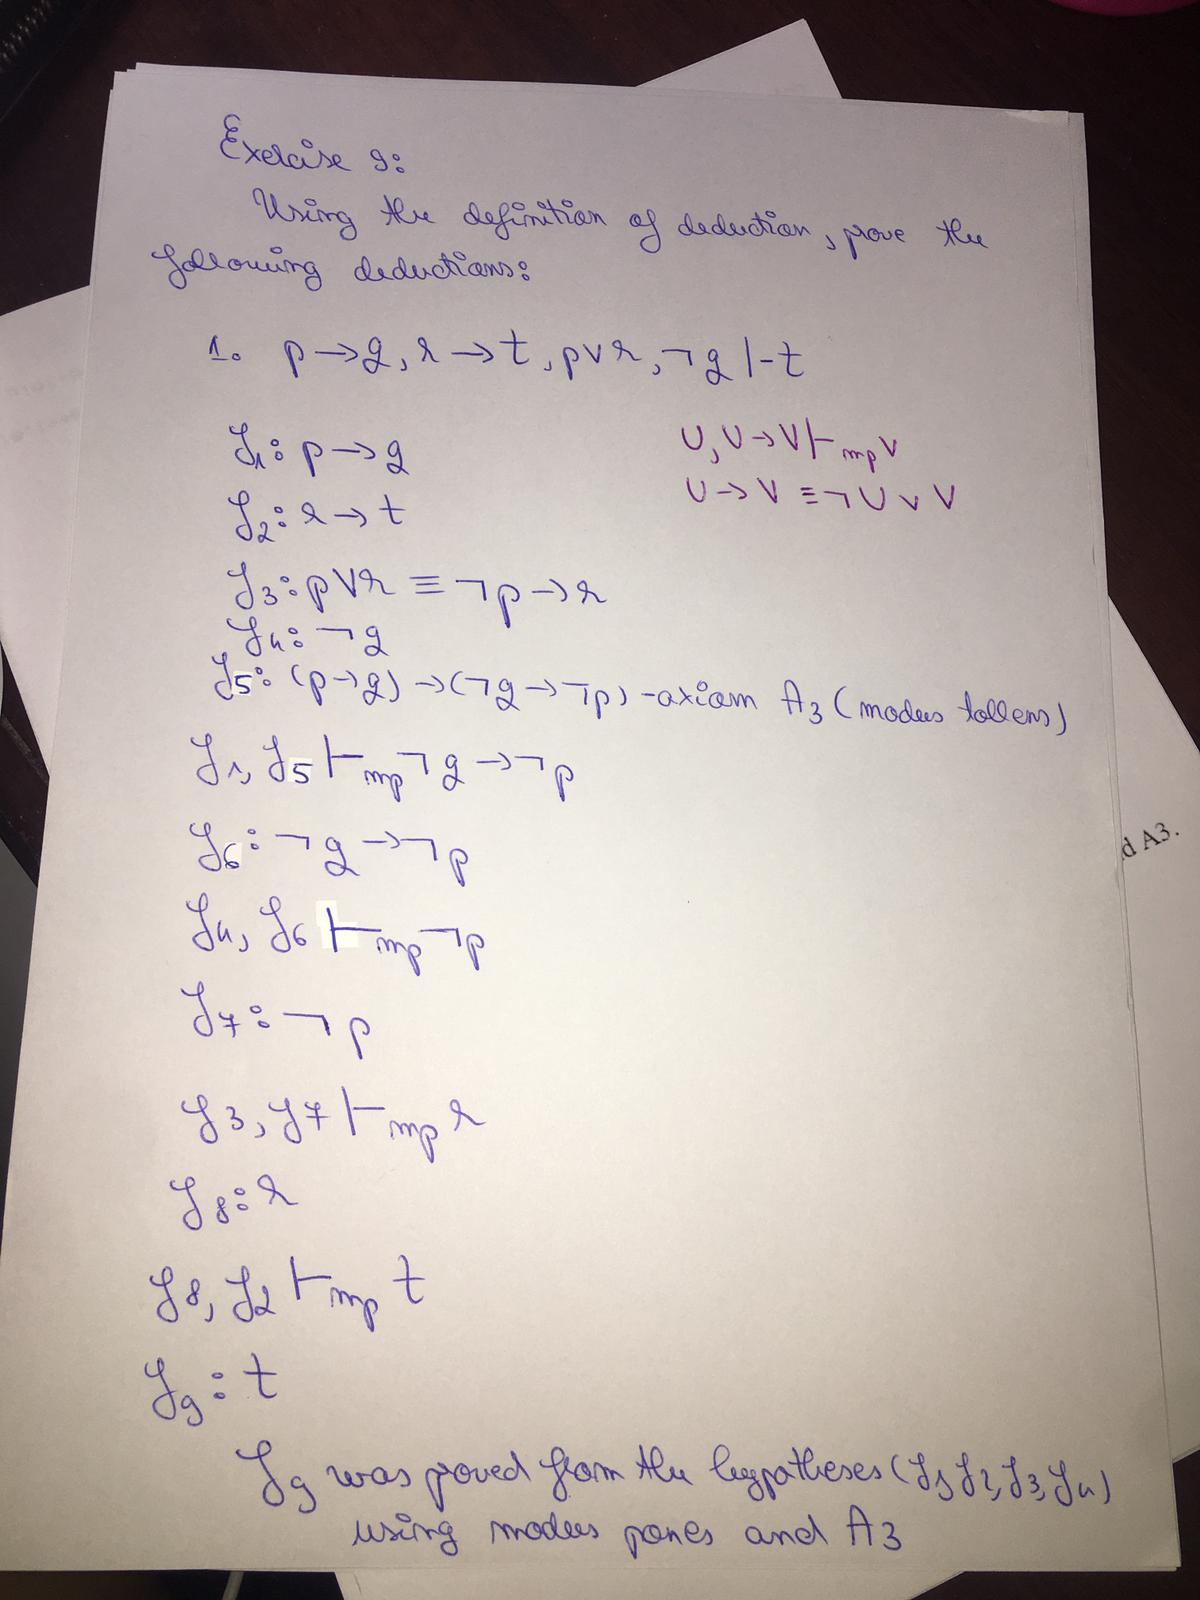 Exercise 9:
Using the definition of deduction, prove the
following deductions:
1. p → q, r → t, p ∨ r, ¬q |- t
f1: p → q
U, U → V ⊢mp V
f2: r → t
U → V ≡ ¬U ∨ V
f3: p ∨ r ≡ ¬p → r
f4: ¬q
f5: (p → q) → (¬q → ¬p) - axiom A3 (modus tollens)
f1, f5 ⊢mp ¬q → ¬p
f6: ¬q → ¬p
f4, f6 ⊢mp ¬p
f7: ¬p
d A3.
f3, f7 ⊢mp r
f8: r
f8, f2 ⊢mp t
f9: t
f9 was proved from the hypotheses (f1, f2, f3, f4)
using modus pones and A3